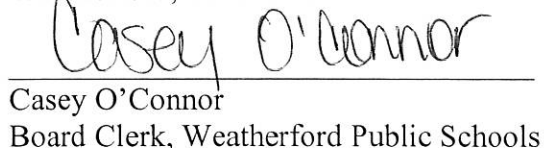 Casey O'Connor
Casey O'Connor
Board Clerk, Weatherford Public Schools